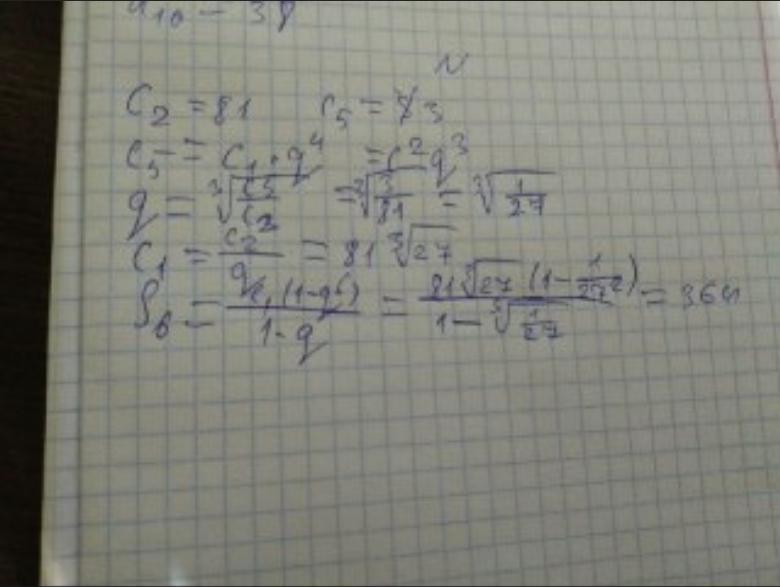 a₁₀ = 38
N
C₂ = 81 C₅ = 3
C₅ = C₁ · q⁴ = C₂q³
q = ∛(C₅/C₂) = ∛(3/81) = ∛(1/27)
C₁ = C₂/q = 81 ∛27
S₆ = C₁(1-q⁶)/(1-q) = 81∛27 (1-1/27²)/(1-∛(1/27)) = 364